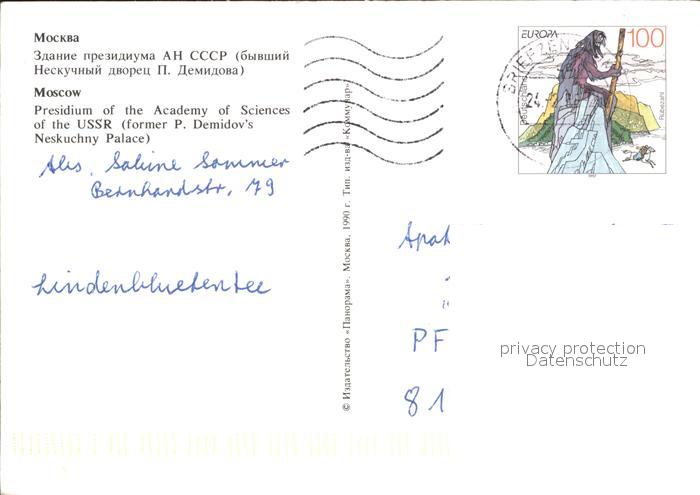 Москва
Здание президиума АН СССР (бывший
Нескучный дворец П. Демидова)
Moscow
Presidium of the Academy of Sciences
of the USSR (former P. Demidov's
Neskuchny Palace)
Abs. Sabine Sommer
Bernhardstr. 79
Lindenbluetentee
© Издательство «Панорама». Москва, 1990 г. Тип. изд-ва «Коммунар»
EUROPA
100
Deutschland
Rübezahl
1997
BRIEZEN
24.
Apot
PF
81
privacy protection
Datenschutz